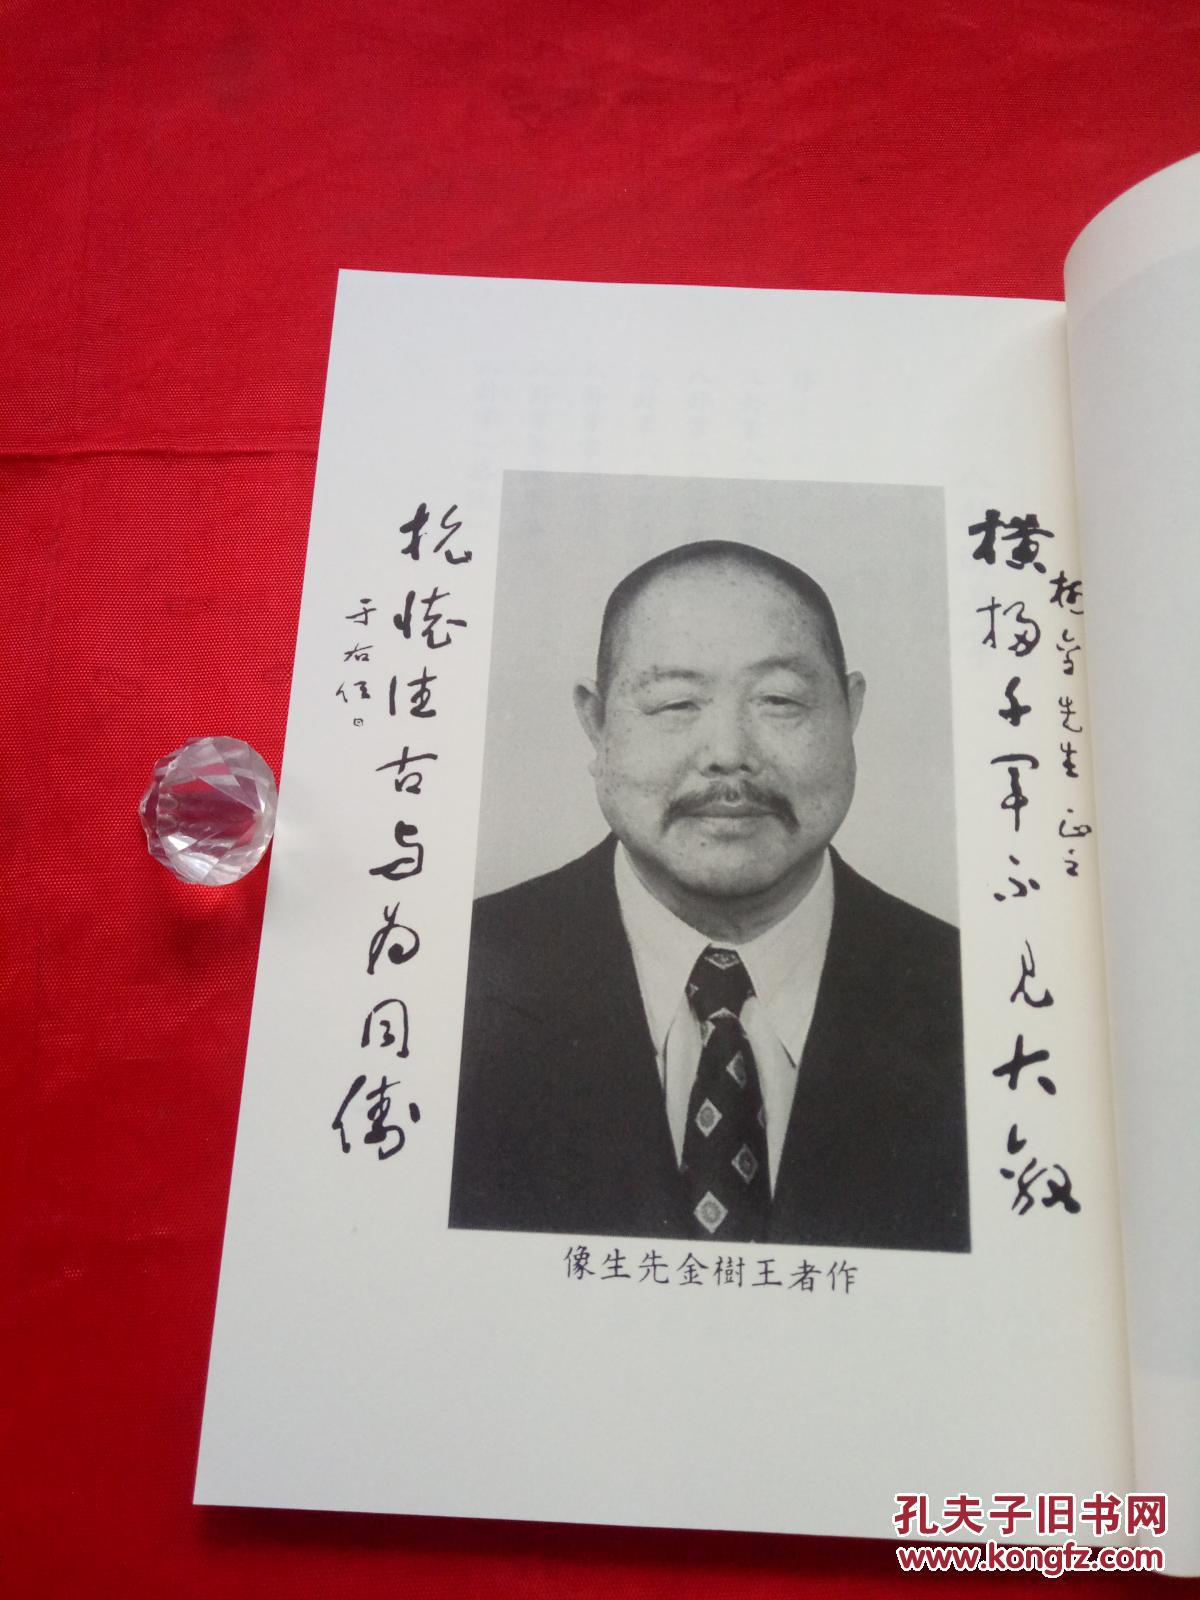 樹金先生正之
橫掃千軍不見大敵
抗懷往古與為同儔
于右任
作者王樹金先生像
孔夫子旧书网
www.kongfz.com